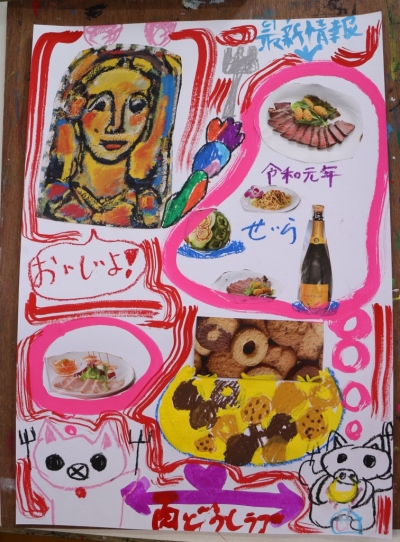 最新情報
令和元年
せいう
おいじよ!
肉どうしラブ